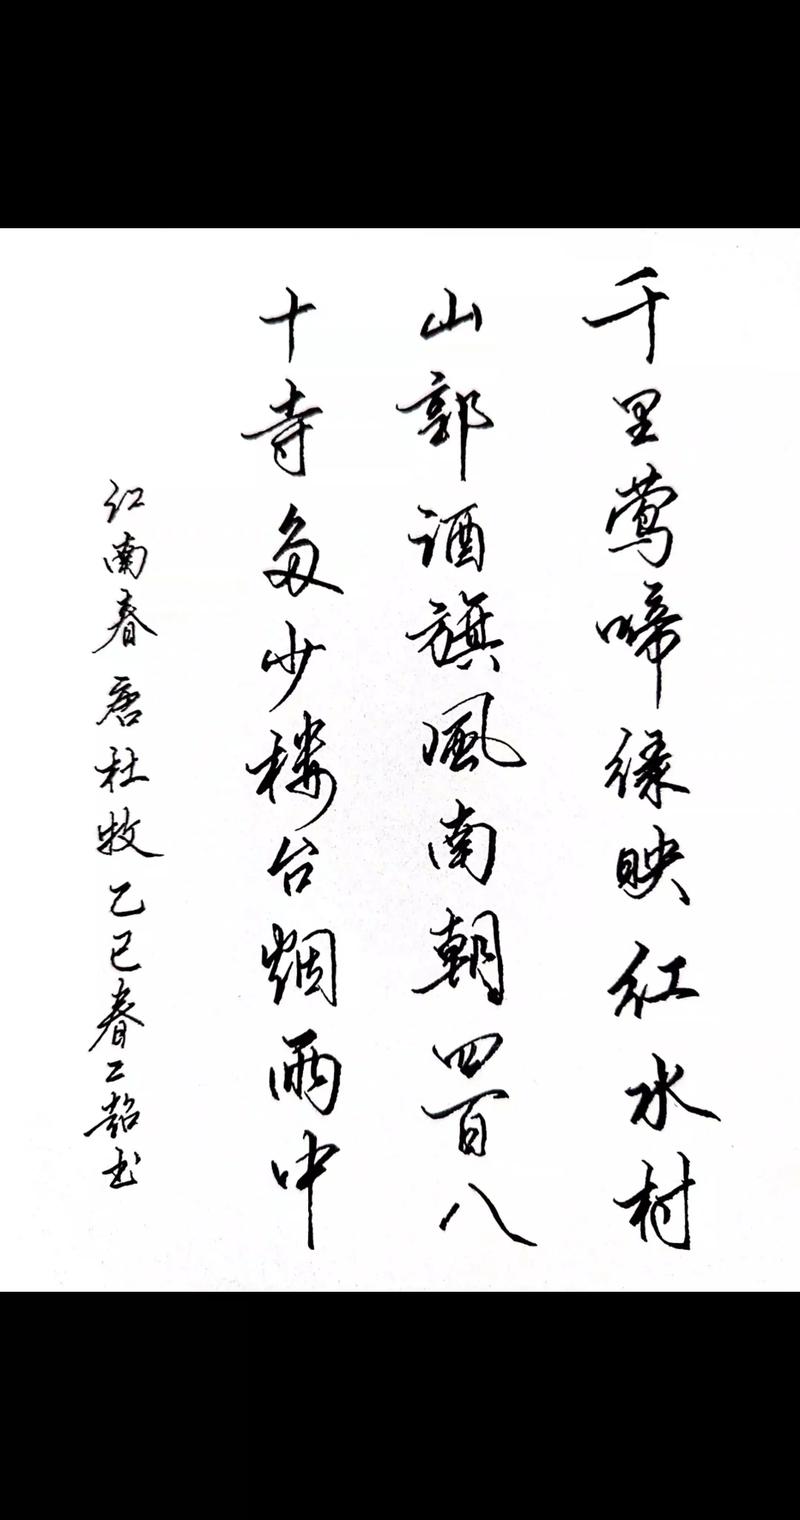 千里莺啼绿映红水村
山郭酒旗风南朝四百八
十寺多少楼台烟雨中
江南春唐杜牧乙巳春二韶书